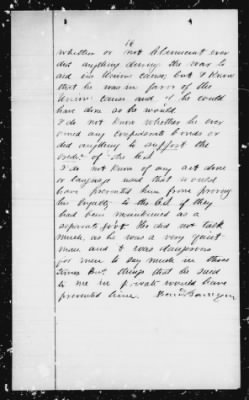 whether or not claimant ever
did anything during the war to
aid the Union cause, but I know
that he was in favor of the
Union cause and if he could
have done so he would.
I do not know whether he ever
owned any confederate bonds or
did anything to support the
credit of the
I do not know of any act done
or language used that would
have prevented him from proving
his loyalty to the if they
had been mentioned as a
separate He did not talk
much, as he was a very quiet
man and it was dangerous
for men to say much in those
times but things that he said
to me in private would have
prevented him.